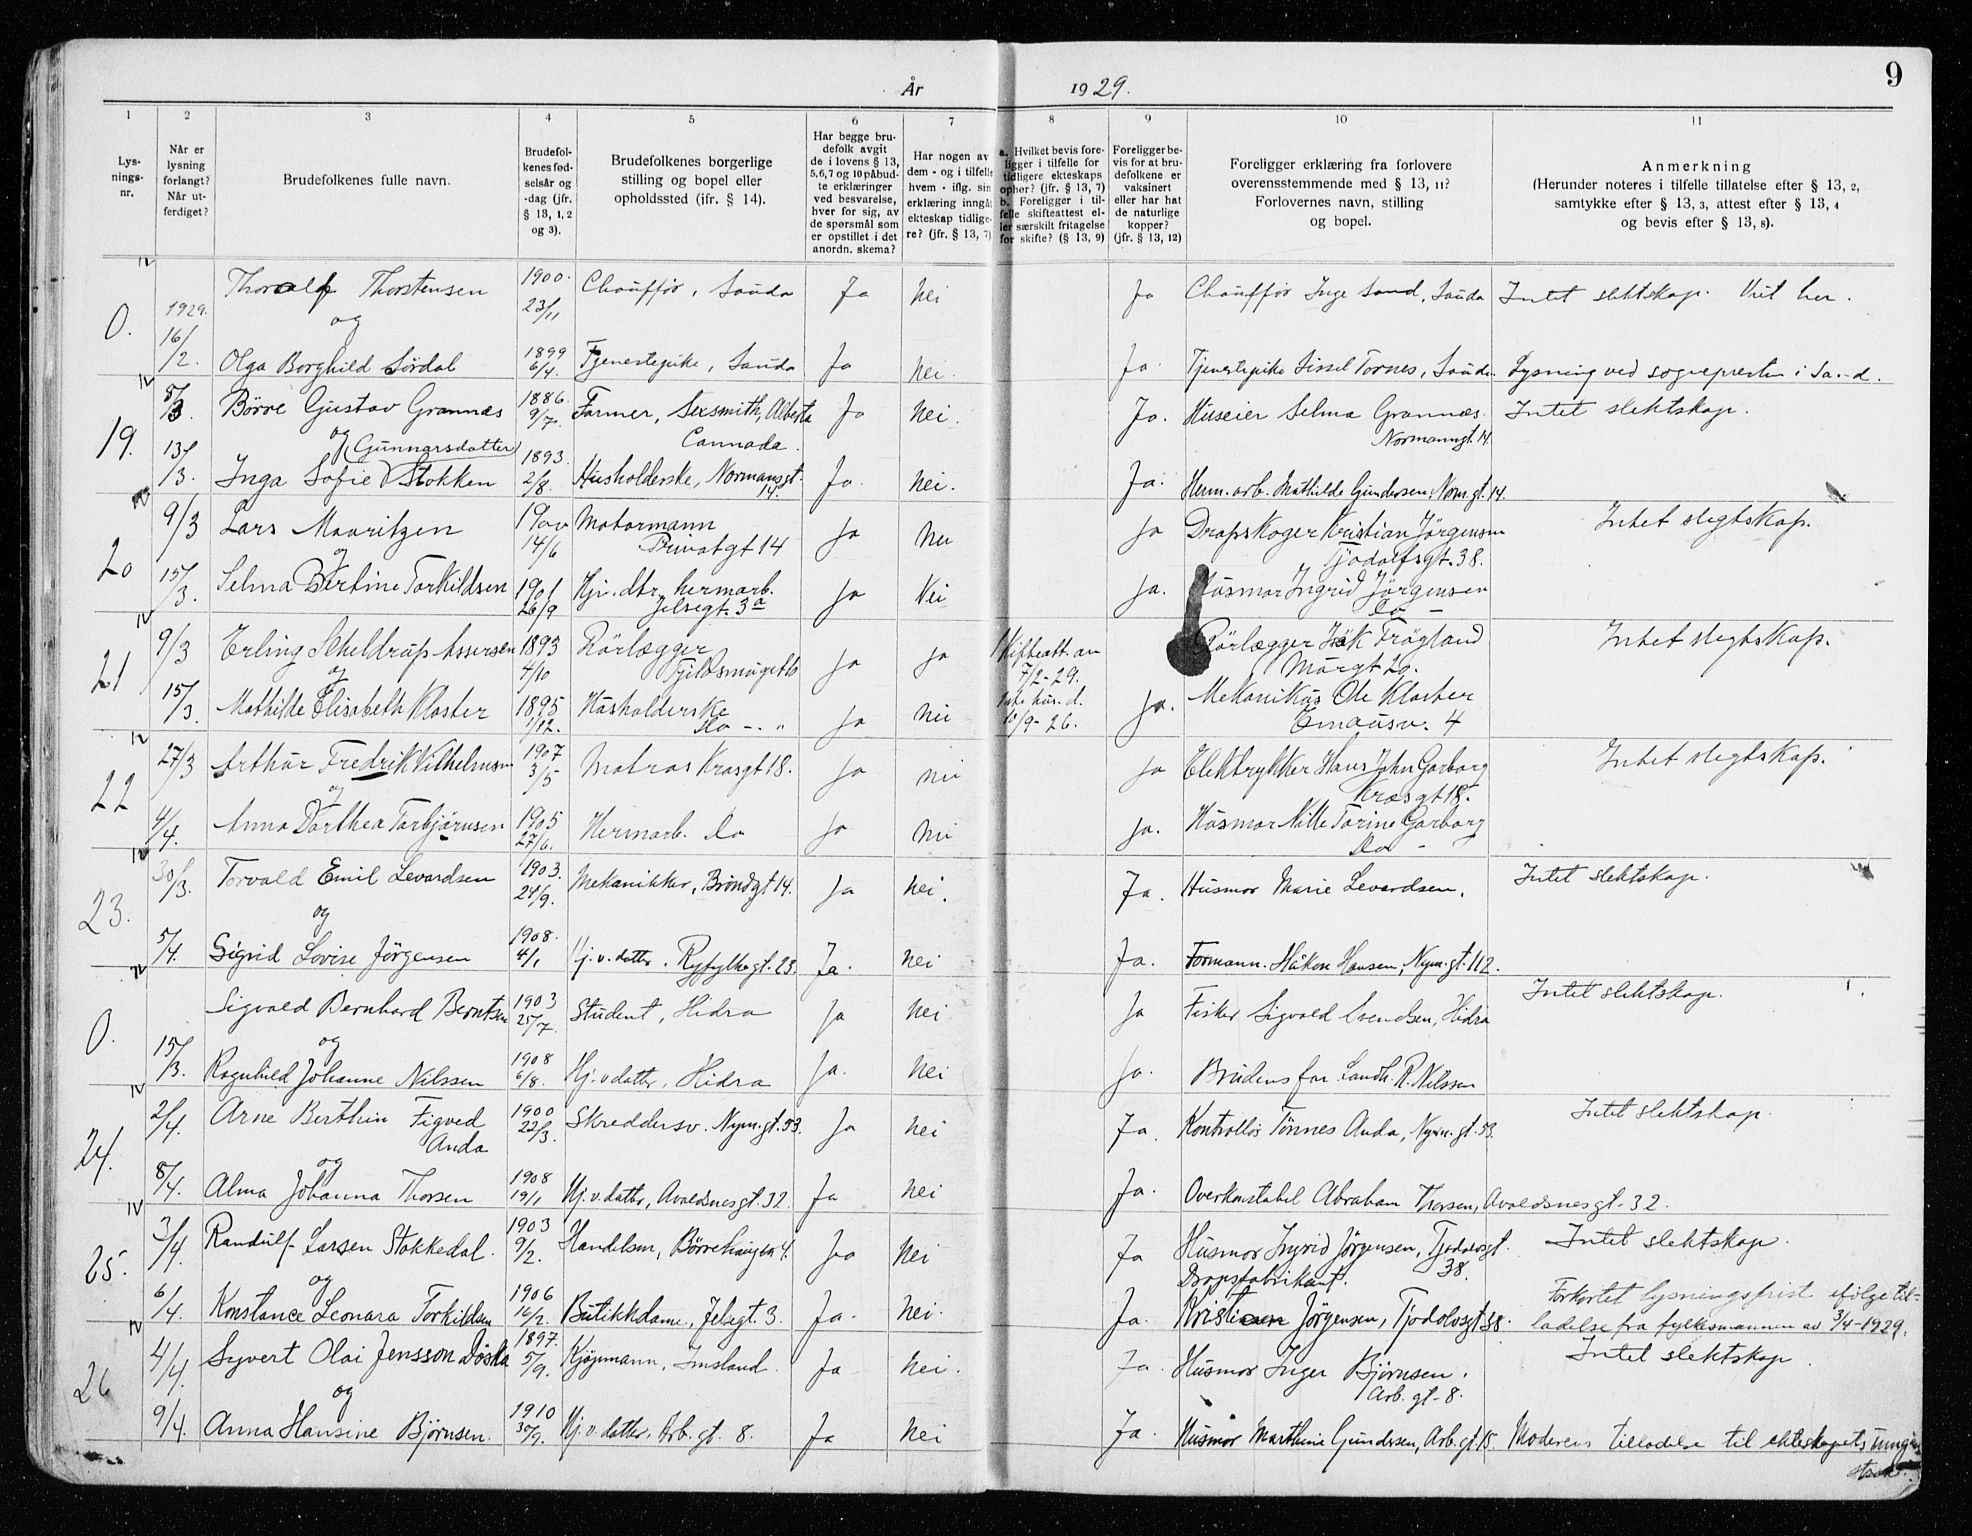 År 1929. 9
1 2 3 4 5 6 7 8 9 10 11
Lys-
nings-
nr.
Når er
lysning
forlangt?
Når ut-
ferdiget?
Brudefolkenes fulle navn.
Brudefol-
kenes fød-
selsår og
-dag (jfr.
§ 13, 1, 2
og 3).
Brudefolkenes borgerlige
stilling og bopel eller
opholdssted (jfr. § 14).
Har begge bru-
defolk avgit
de i lovens § 13,
5, 6, 7 og 10 påbud-
te erklæringer
ved besvarelse,
hver for sig, av
de spørsmål som
er opstillet i det
anordn. skema?
Har nogen av
dem - og i tilfelle
hvem - iflg. sin
erklæring inngåt
ekteskap tidlige-
re? (jfr. § 13, 7)
a. Hvilket bevis fore-
ligger i tilfelle for
tidligere ekteskaps
ophør? (jfr. § 13, 7)
b. Foreligger i til-
felle skifteattest el-
ler særskilt fritagelse
for skifte? (§ 13, 9)
Foreligger be-
vis for at bru-
defolkene er
vaksinert
eller har hat
de naturlige
kopper?
(jfr. § 13, 12)
Foreligger erklæring fra forlovere
overensstemmende med § 13, 11?
Forlovernes navn, stilling
og bopel.
Anmerkning
(Herunder noteres i tilfelle tillatelse efter § 13, 2,
samtykke efter § 13, 3, attest efter § 13, 4
og bevis efter § 13, 8).
Thoralf Thorstensen 1900. 23/11 Chauffør, Sauda Ja Nei Ja Chauffør Inge Sand, Sauda Intet slektskap. Viet her.
0. 1929. 16/2. og
Olga Borghild Sørdal 1899 6/4. Tjenestepike, Sauda Ja Nei. Ja. Tjenestepike Sissel Tornes, Sauda. Lysning ved sognepresten i Sand.
5/3 Börre Gustav Grannæs 1886. 9/7. Farmer, Sexsmith, Alberta Ja Nei. Ja. Huseier Selma Grannæs. Intet slektskap.
19. og (Gunnarsdatter) Cannada. Normannsgt. 14.
13/3. Inga Sofie Stokken 1893. 2/8. Husholderske, Normansgt. 14. Ja. Nei. Ja. Herm. arb. Mathilde Gundersen, Norm.gt. 14.
9/3 Lars Mauritzen 14/6 Motormann Ja Nei Ja Drapskoger Kristian Jørgensen Intet slegtskap.
20 og Privatgt 14 Tjodolfsgt. 38.
15/3. Selma Bertine Torkildsen 1901 26/9 Hj. dtr. hermarb. Jelsegt. 3a Ja Nei Ja. Husmor Ingrid Jørgensen
Do -
9/3 Erling Scheldrup Assersen 1893 4/10 Rörlægger Ja Ja Skifteatt. av Rörlægger Frøgland Intet slegtskap.
21 og 7/2-29. Mårgt 20.
15/3. Mathilde Elisabeth Kloster 1895 1/12. Husholderske Do -. " Ja Nei 10/9-26. Ja. Mekanikus Ole Kloster
Emausv. 4
27/3 Arthur Fredrik Vilhelmsen 1907 3/5 Matros Krasgt 18. Ja Nei Ja Elektrykker Hans John Garborg Intet slegtskap.
22 og Krasgt 18.
4/4. Anna Dorthea Torbjørnsen 1905 27/6. Hermarb. Do Ja Nei Ja. Husmor Nille Torine Garborg
Do -
30/3. Torvald Emil Levardsen 1903. 24/9. Mekanikker, Bröndgt 14. Ja Nei. Ja. Husmor Marie Levardsen. Intet slektskap.
23. og
5/4. Sigrid Lovise Jörgensen 1908. 4/1 Hj. v. datter. Ryfylkegt. 23. Ja. Nei Ja. Formann. Håkon Hansen, Nym.gt. 112.
Sigvald Bernhard Berntsen 1903 25/7. Student, Hidra Ja Nei Ja Fisker Sigvald Svendsen, Hidra Intet slektskap.
0. og
15/3. Ragnhild Johanne Nilssen 1908 6/8. Hj. v datter, Hidra Ja. Nei Ja. Brudens far Landh. R. Nilssen
2/4. Arne Berthin Figved 1900 22/3. Skreddersv. Nym.gt. 53. Ja Nei Ja. Kontrollør Tönnes Anda, Nym. gt. 53. Intet slektskap.
Anda
24. og
8/4. Alma Johanna Thorsen 1908 19/1 Hj. v. datter, Avaldsnesgt. 32. Ja Nei Ja. Overkonstabel Abraham Thorsen, Avaldsnesgt. 32.
3/4. Randulf Larsen Stokkedal. 1903 9/2. Handelsm, Börrehaugen 4. Ja Nei Ja Husmor Ingrid Jörgensen, Tjodolvsgt. 38. Intet slektskap.
25. og Dropsfabrikant.
6/4. Konstance Leonara Torkildsen 1906 16/2. Butikkdame, Jelsegt. 3. Ja. Nei. Ja. Kristian Jörgensen, Tjodolvsgt 38. Forkortet lysningsfrist ifölge til-
ladelse fra fylkesmannen av 3/4-1929.
4/4. Syvert Olai Jensson Döska 1897. 5/9. Kjöpmann, Imsland. Ja Nei. Ja. Husmor Inger Björnsen. Intet slektskap.
26 og Arb. gt. 8.
9/4. Anna Hansine Björnsen. 1910 30/9. Hj. v. datter. Arb. gt. 8. Ja Nei Ja. Husmor Marthine Gundersen, Arb. gt. 15. Moderens tilladelse til ekteskapets inngå-